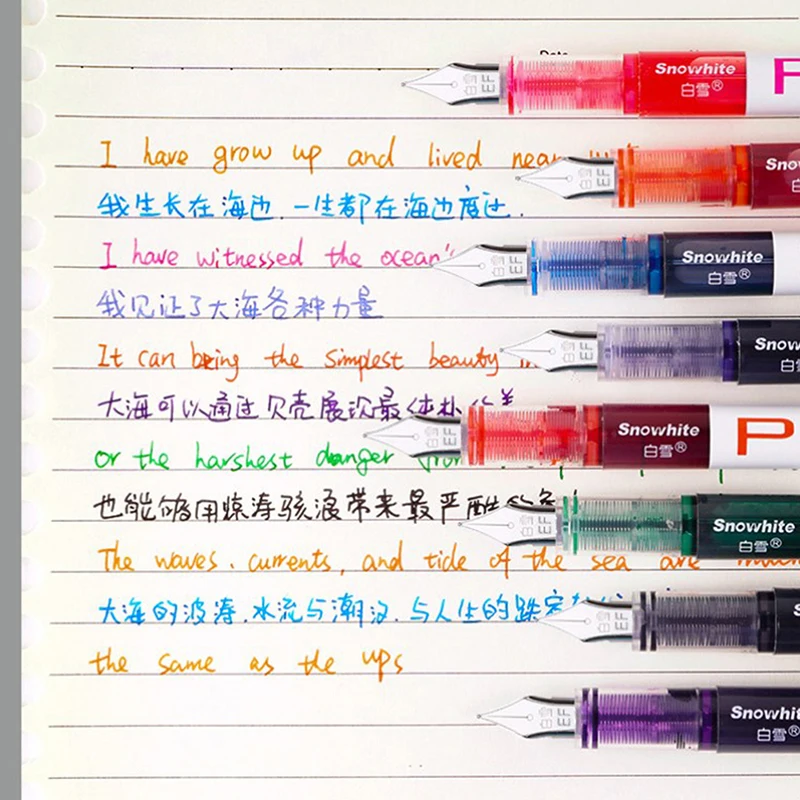 Snowhite
白雪®
EF
P
I have grow up and lived near
EF
我生长在海边.一生都在海边度过.
I have witnessed the ocean's
EF
Snowhite
白雪®
我见证了大海各种力量
EF
It can bring the simplest beauty
大海可以通过贝壳展现最体朴
Snowhite
白雪®
P
or the harshest danger from
EF
也能够用惊涛骇浪带来最严酷的
Snowhite
白雪®
EF
The waves. currents, and tide of the sea are
大海的波涛.水流与潮汐.与人生的跌宕
EF
the same as the ups
EF
Snowhite
白雪®